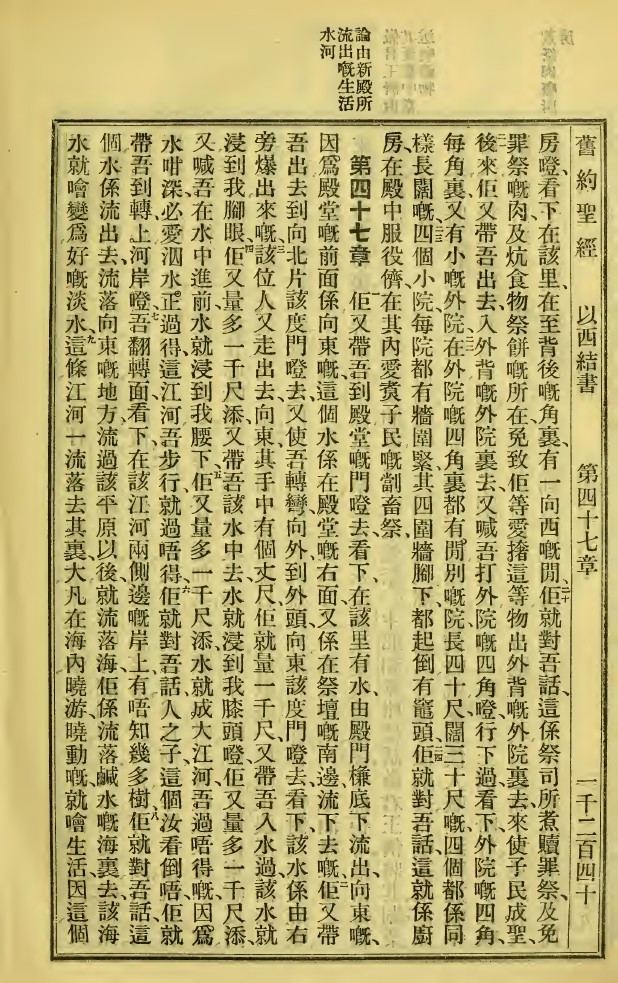 舊約聖經 以西結書 第四十七章 一千二百四十
論由新殿所
流出嘅生活
水河
房噔、看下、在該里、在至背後嘅角裏、有一向西嘅閒、二十佢就對吾話、這係祭司所煮贖罪祭、及免
罪祭嘅肉、及炕食物祭餅嘅所在、免致佢等愛搼這等物出外背嘅外院裏去、來使子民成聖、
二一後來佢又帶吾出去、入外背嘅外院裏去、又喊吾打外院嘅四角噔行下過、看下、外院嘅四角、
每角裏、又有小嘅外院、二二在外院嘅四角裏、都有閒別嘅院、長四十尺、闊三十尺嘅、四個都係同
樣長闊嘅、二三四個小院、每院都有牆圍緊其四圍、牆腳下、都起倒有竈頭、二四佢就對吾話、這就係廚
房、在殿中服役儕、在其內愛煑子民嘅劏畜祭、
第四十七章 一佢又帶吾到殿堂嘅門噔去、看下、在該里有水、由殿門檐底下流出向東嘅、
因爲殿堂嘅前面係向東嘅、這個水係在殿堂嘅右面、又係在祭壇嘅南邊流下去嘅、二佢又帶
吾出去、到向北片該度門噔去、又使吾轉彎向外、到外頭向東該度門噔去、看下、該水係由右
旁爆出來嘅、三該位人又走出去向東、其手中有個丈尺、佢就量一千尺、又帶吾入水過、該水就
浸到我腳眼、四佢又量多一千尺添、又帶吾該水中去、水就浸到我膝頭噔、佢又量多一千尺添、
又喊吾在水中進前、水就浸到我腰下、五佢又量多一千尺添、水就成大江河、吾過唔得嘅、因爲
水咁深、必愛泅水、正過得這江河、吾步行就過唔得、六佢就對吾話、人之子、這個汝看倒唔、佢就
帶吾到轉上河岸噔、七吾翻轉面看下、在該江河兩側邊嘅岸上有唔知幾多樹、八佢就對吾話、這
個水係流出去、流落向東嘅地方、流過該平原、以後就流落海、佢係流落鹹水嘅海裏去、該海
水就噲變爲好嘅淡水、九這條江河一流落去、其裏大凡在海內曉游曉動嘅、就噲生活、因這個